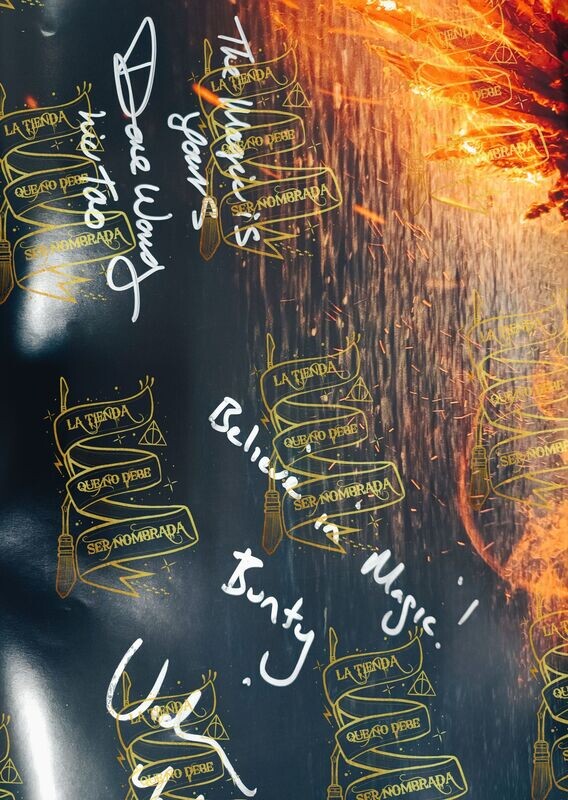 The Magic is
yours
LA TIENDA
QUE NO DEBE
SER NOMBRADA
LA TIENDA
QUE NO DEBE
SER NOMBRADA
LA TIENDA
QUE NO DEBE
LA TIENDA
QUE NO DEBE
SER NOMBRADA
LA TIENDA
QUE NO DEBE
SER NOMBRADA
LA TIENDA
QUE NO DEBE
SER NOMBRADA
Believe in Magic.
Bunty
LA TIENDA
QUE NO DEBE
SER NOMBRADA
LA TIENDA
QUE NO DEBE